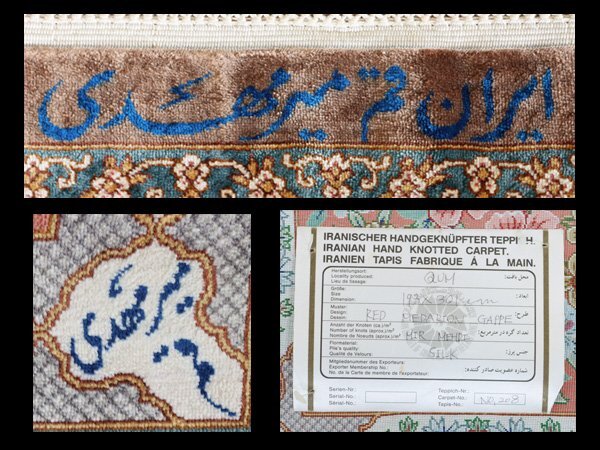 ایران قم میرمهدی
میرمهدی
قم
IRANISCHER HANDGEKNÜPFTER TEPPI H.
IRANIAN HAND KNOTTED CARPET.
IRANIEN TAPIS FABRIQUE À LA MAIN.
Herstellungsort:
Locality produced: QUM محل بافت:
Lieu de tissage:
Größe:
Size ابعاد:
Dimension:
Muster:
Design: RED MEDALION طرح:
Dessin:
Anzahl der Knoten (ca.)/m²
Number of knots (aprox.)/m² MIR MEHDI تعداد گره در مترمربع:
Nombre de Noeuds (aprox.)/m²
Flormaterial:
Pile's quality SILK جنس پرز:
Qualité de Velours:
Mitgliedsnummer des Exporteurs:
Exporter Membership No.: شماره عضویت صادر کننده:
No. de la Carte de membre de l'exportateur:
Serien-Nr: Teppich-Nr:
Serial-Nr: Carpet-No: NO. 208
Sérial-Nr: Tapis-No: